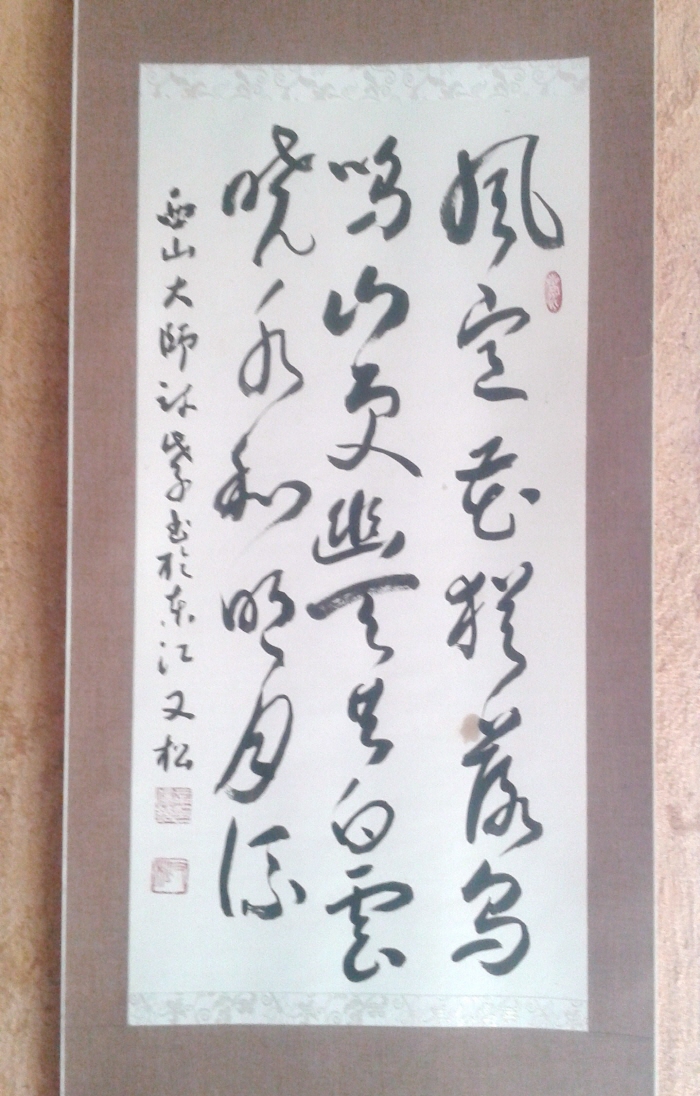 風定花猶落鳥
鳴山更幽天共白雲
曉水和明月流
西山大師詩 書於东江 又松